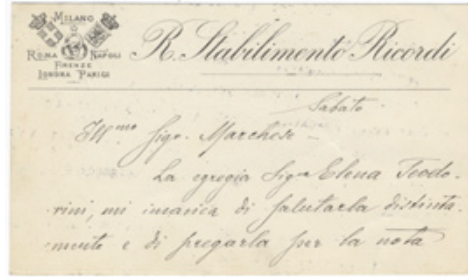 MILANO
ROMA NAPOLI
FIRENZE
LONDRA PARIGI
R. Stabilimento Ricordi
Sabato
Ill.mo Sigr. Marchese -
La egregia Sigra Elena Teodo-
rini, mi incarica di salutarla distinta-
mente e di pregarla per la nota